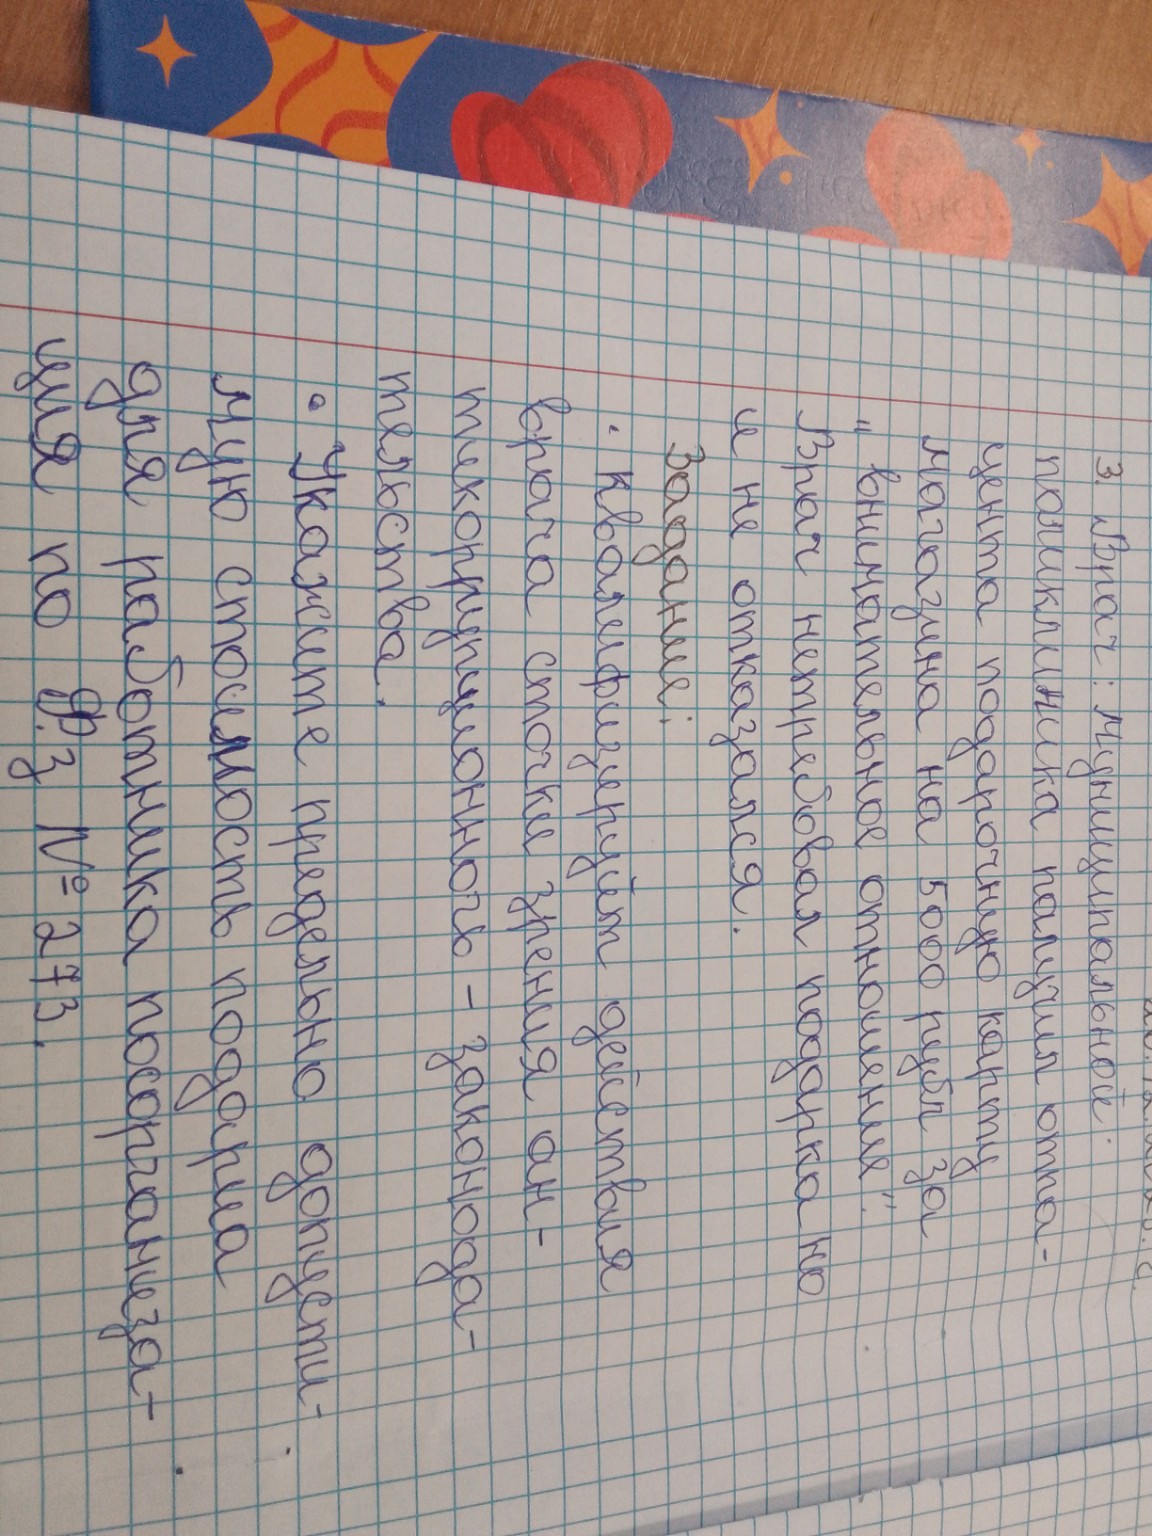 3. Врач: муниципальной
поликлиника палучил отпа-
цента подарочную карту
магагазина на 5000 рубл за
"внимательное отношения".
Врач нетребовал подарка но
и не отказался.
Задание:
• квалефицеруйт действия
врача сточки зрения ан-
тикоррупционногь - законода-
тельства.
• Укажите предельно допусти-
мую стоелмость подарма
для работника посорганеза-
ция по Ф.З № 273.